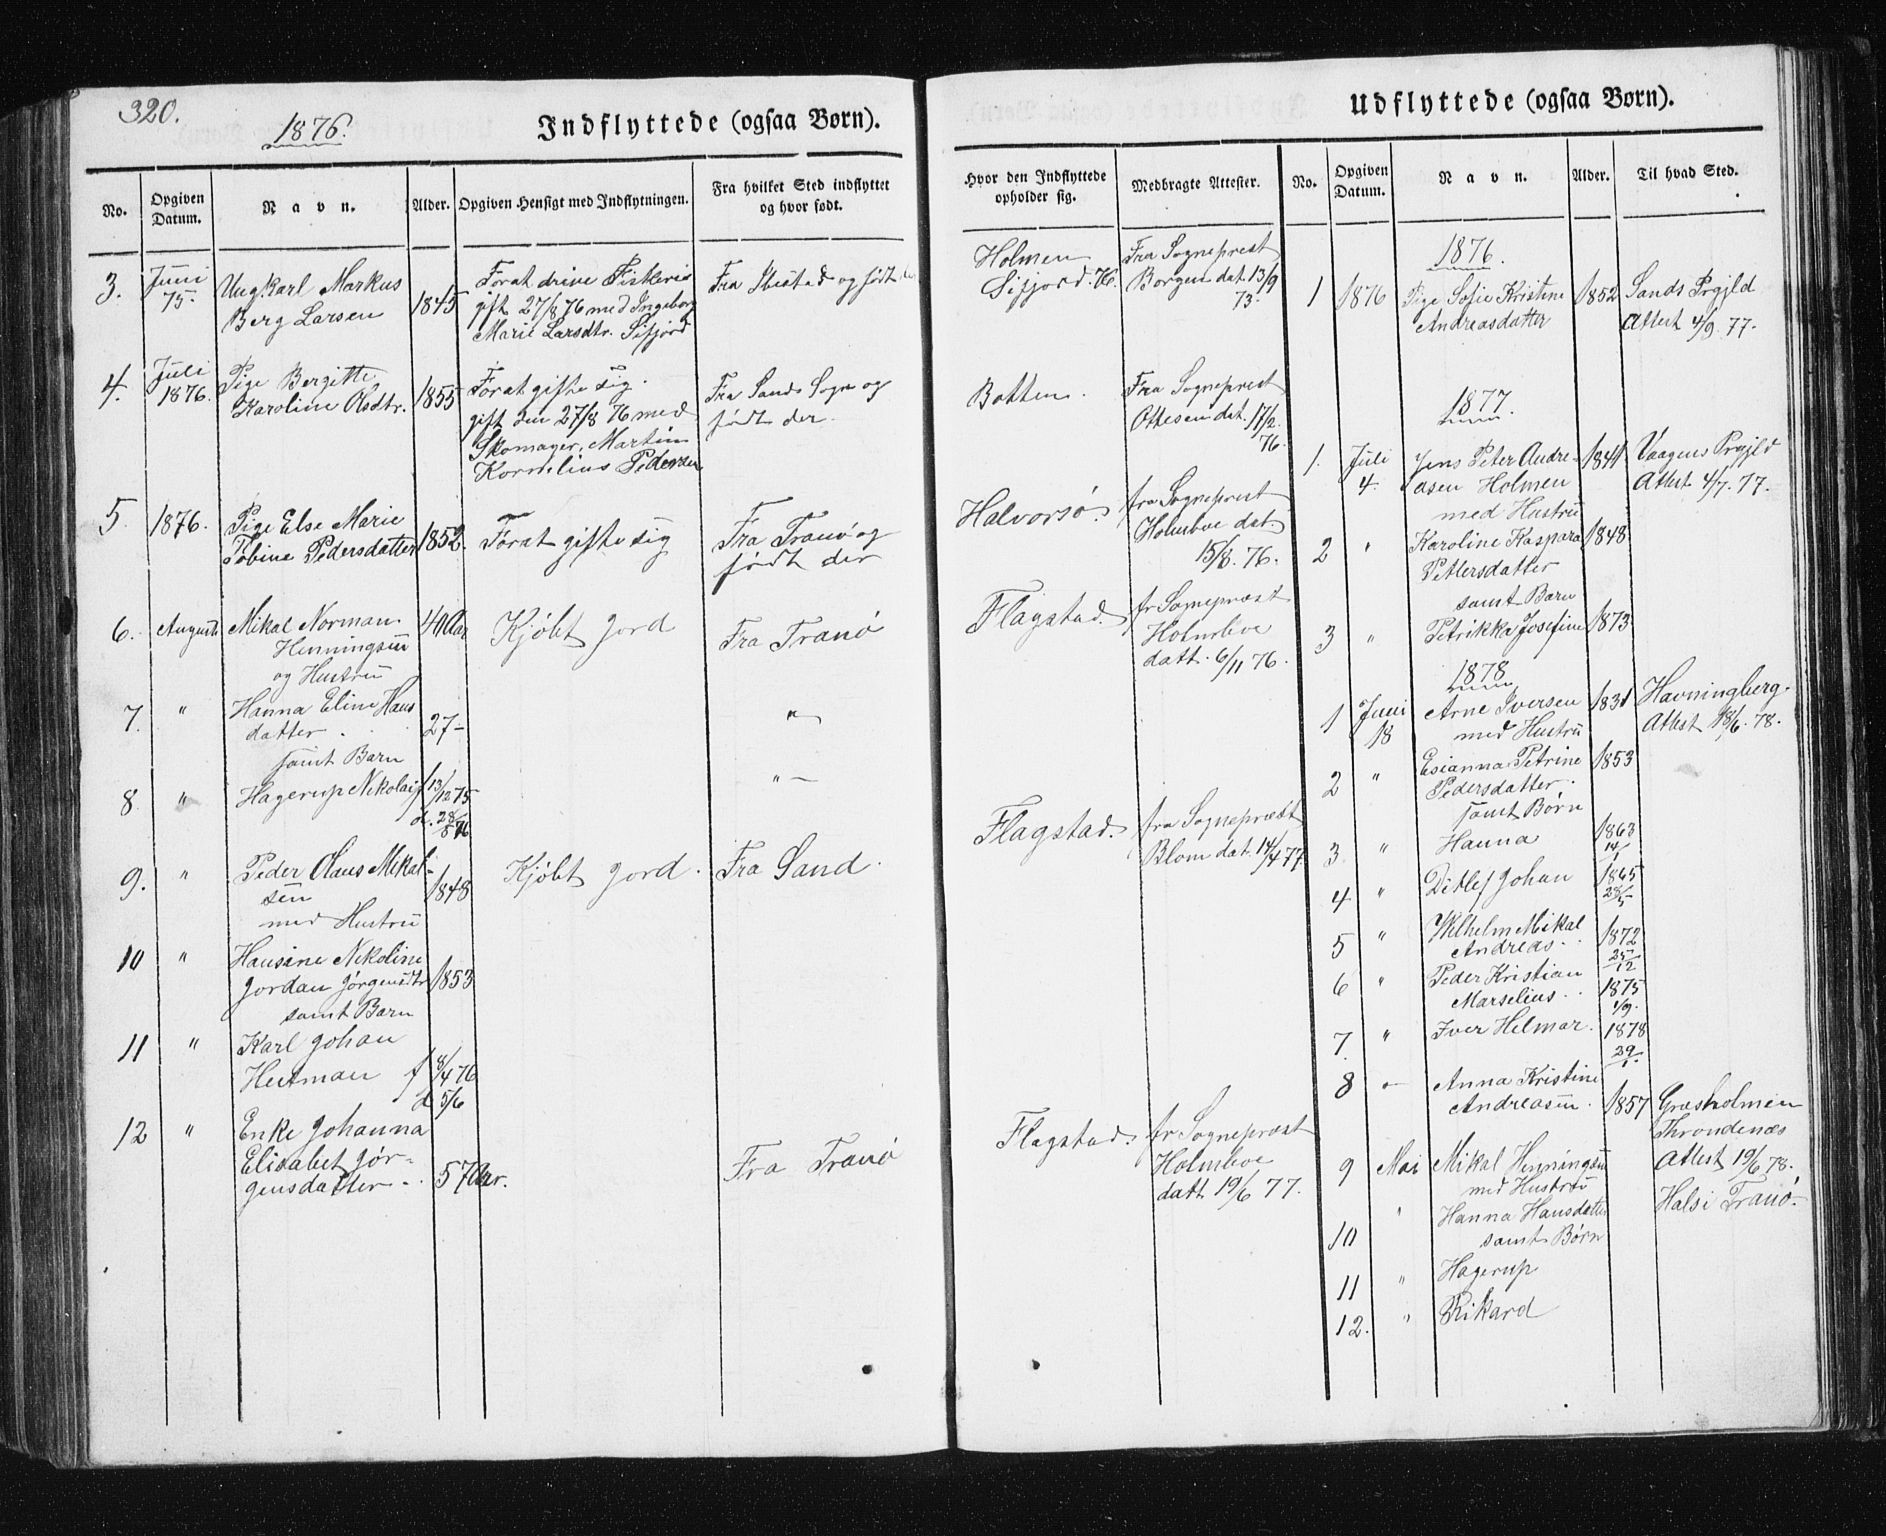 320.
1876.
Indflyttede (ogsaa Børn).
No.
Opgiven Datum.
Navn.
Alder.
Opgiven Hensigt med Indflytningen.
Fra hvilket Sted indflyttet og hvor født.
3.
Juni 75.
Ungkarl Markus
Berg Larsen
1845
Forat drive Fiskeri
gift 27/8 76 med Ingeborg
Marie Larsdtr. Sifjord
Fra Ibestad og født
4.
Juli 1876.
Pige Bergitte
Karoline Olsdtr.
1855
Forat gifte sig.
gift den 27/8 76 med
Skomager Martin
Kornelius Pedersen
Fra Sands Sogn og
født der.
5
1876.
Pige Else Marie
Tobine Pedersdatter
1852.
Forat gifte sig
Fra Tranø og
født der
6.
August
Mikal Norman
Henningsen
og Hustru
40 Aar
Kjøbt Jord
Fra Tranø
7.
"
Hanna Eline Hans
datter
samt Barn
27 -
"
8
"
Hagerup Nikolai
f 13/12 75
d. 28/5 76
" -
9.
"
Peder Olaus Mikal-
sen
med Hustru
1848
Kjøbt Jord.
Fra Sand.
10
"
Hansine Nikoline
Jordan Jørgensdtr
samt Barn
1853
11
"
Karl Johan
Hartman
f 8/4 76
d 5/6
12
"
Enke Johanna
Elisabet Jør-
gensdatter
57 Aar.
Fra Tranø
Udflyttede (ogsaa Børn).
Hvor den Indflyttede opholder sig.
Medbragte Attester.
No.
Opgiven Datum.
Navn.
Alder.
Til hvad Sted.
Holmen
Sifjord. 76.
Fra Sogneprest
Borgen dat. 13/9
73.
Botten.
Fra Sogneprest
Ottesen dat. 17/2
76.
Halvorsø.
fra Sogneprest
Holmboe dat.
15/8. 76.
Flagstad.
fr Sogneprest
Holmboe
datt. 6/11 76.
Flagstad.
fra Sogneprest
Blom dat. 14/4 77.
Flagstad.
fr Sogneprest
Holmboe
datt 19/6 77.
1876.
1
1876
Pige Sofie Kristine
Andreasdatter
1852
Sands Prgjld
Attest 4/9. 77.
1877.
1.
Juli
4.
Jens Peter Andre-
asen Holmen
med Hustru
1841
Vaagens Prgjld
Attest 4/7. 77.
2
"
Karoline Kaspara
Pettersdatter
samt Barn
1848
3
"
Petrikka Josefine
1873
1878
1
Juni
18
Arne Iversen
med Hustru
1831
Havningberg.
Attest 18/6. 78.
2
"
Esianna Petrine
Pedersdatter.
samt Børn
1853
3
"
Hanna
1863
14/1
4
"
Ditlef Johan
1865
28/5
5
"
Wilhelm Mikal
Andreas
1872
25/12
6
"
Peder Kristian
Marselius
1875
1/9.
7.
"
Iver Helmar.
1878
29/1.
8
-
Anna Kristine
Andreasen.
1857
Græsholmen
Throndenæs
Attest 19/6 78.
9
Mai
Mikal Henningsen
med Hustru
Hals i Tranø.
10
"
Hanna Hansdatter
samt Børn
11
"
Hagerup
12.
"
Rikard